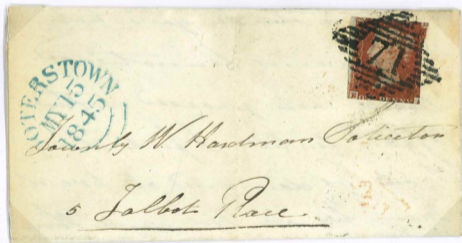 OTERSTOWN
MY 15
1845
71
Townly W. Hardman Solicitor
5 Talbot Place